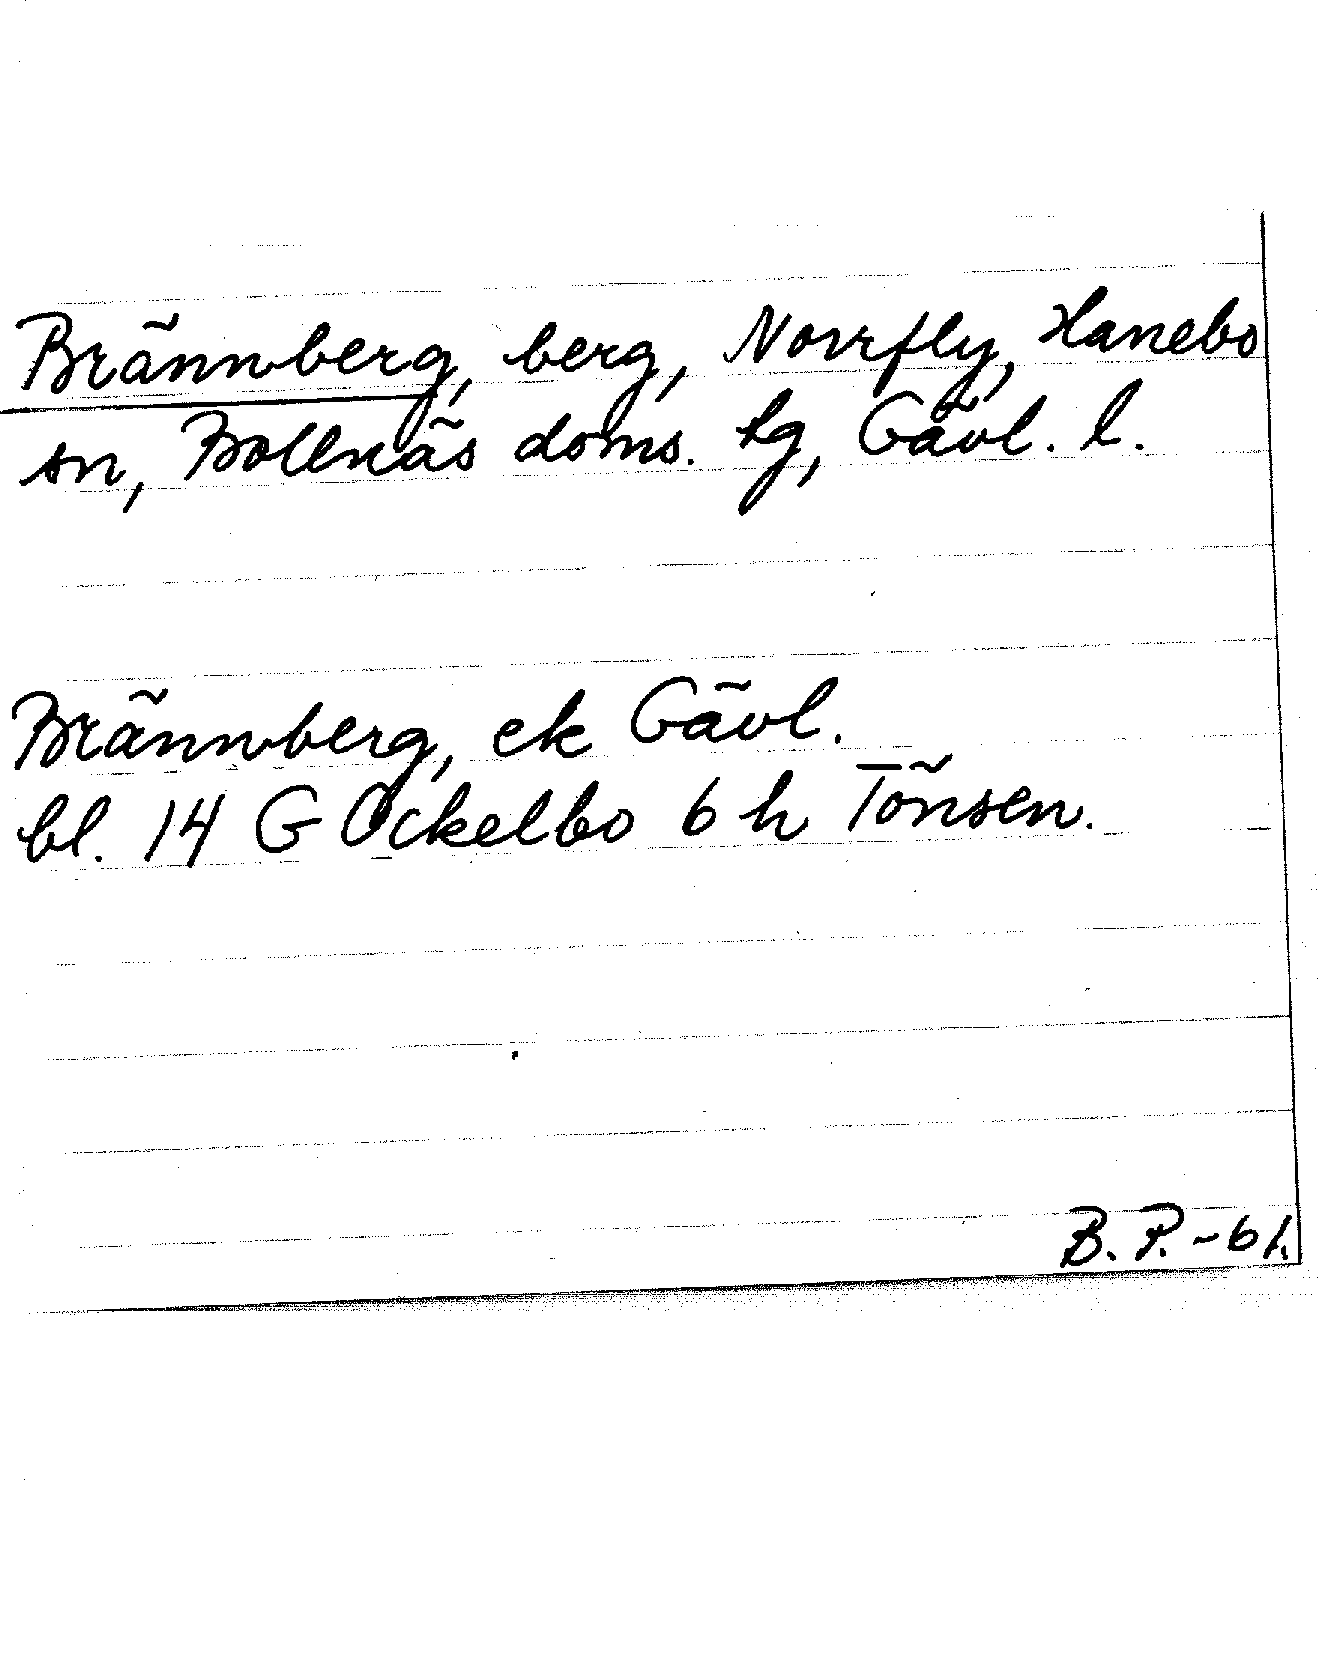 Brännberg, berg, Norrfly, Hanebo
sn, Bollnäs doms. hg, Gävl. l.
Brännberg, ek Gävl.
bl. 14 G Ockelbo 6 h Tönsen.
B. P. -61.